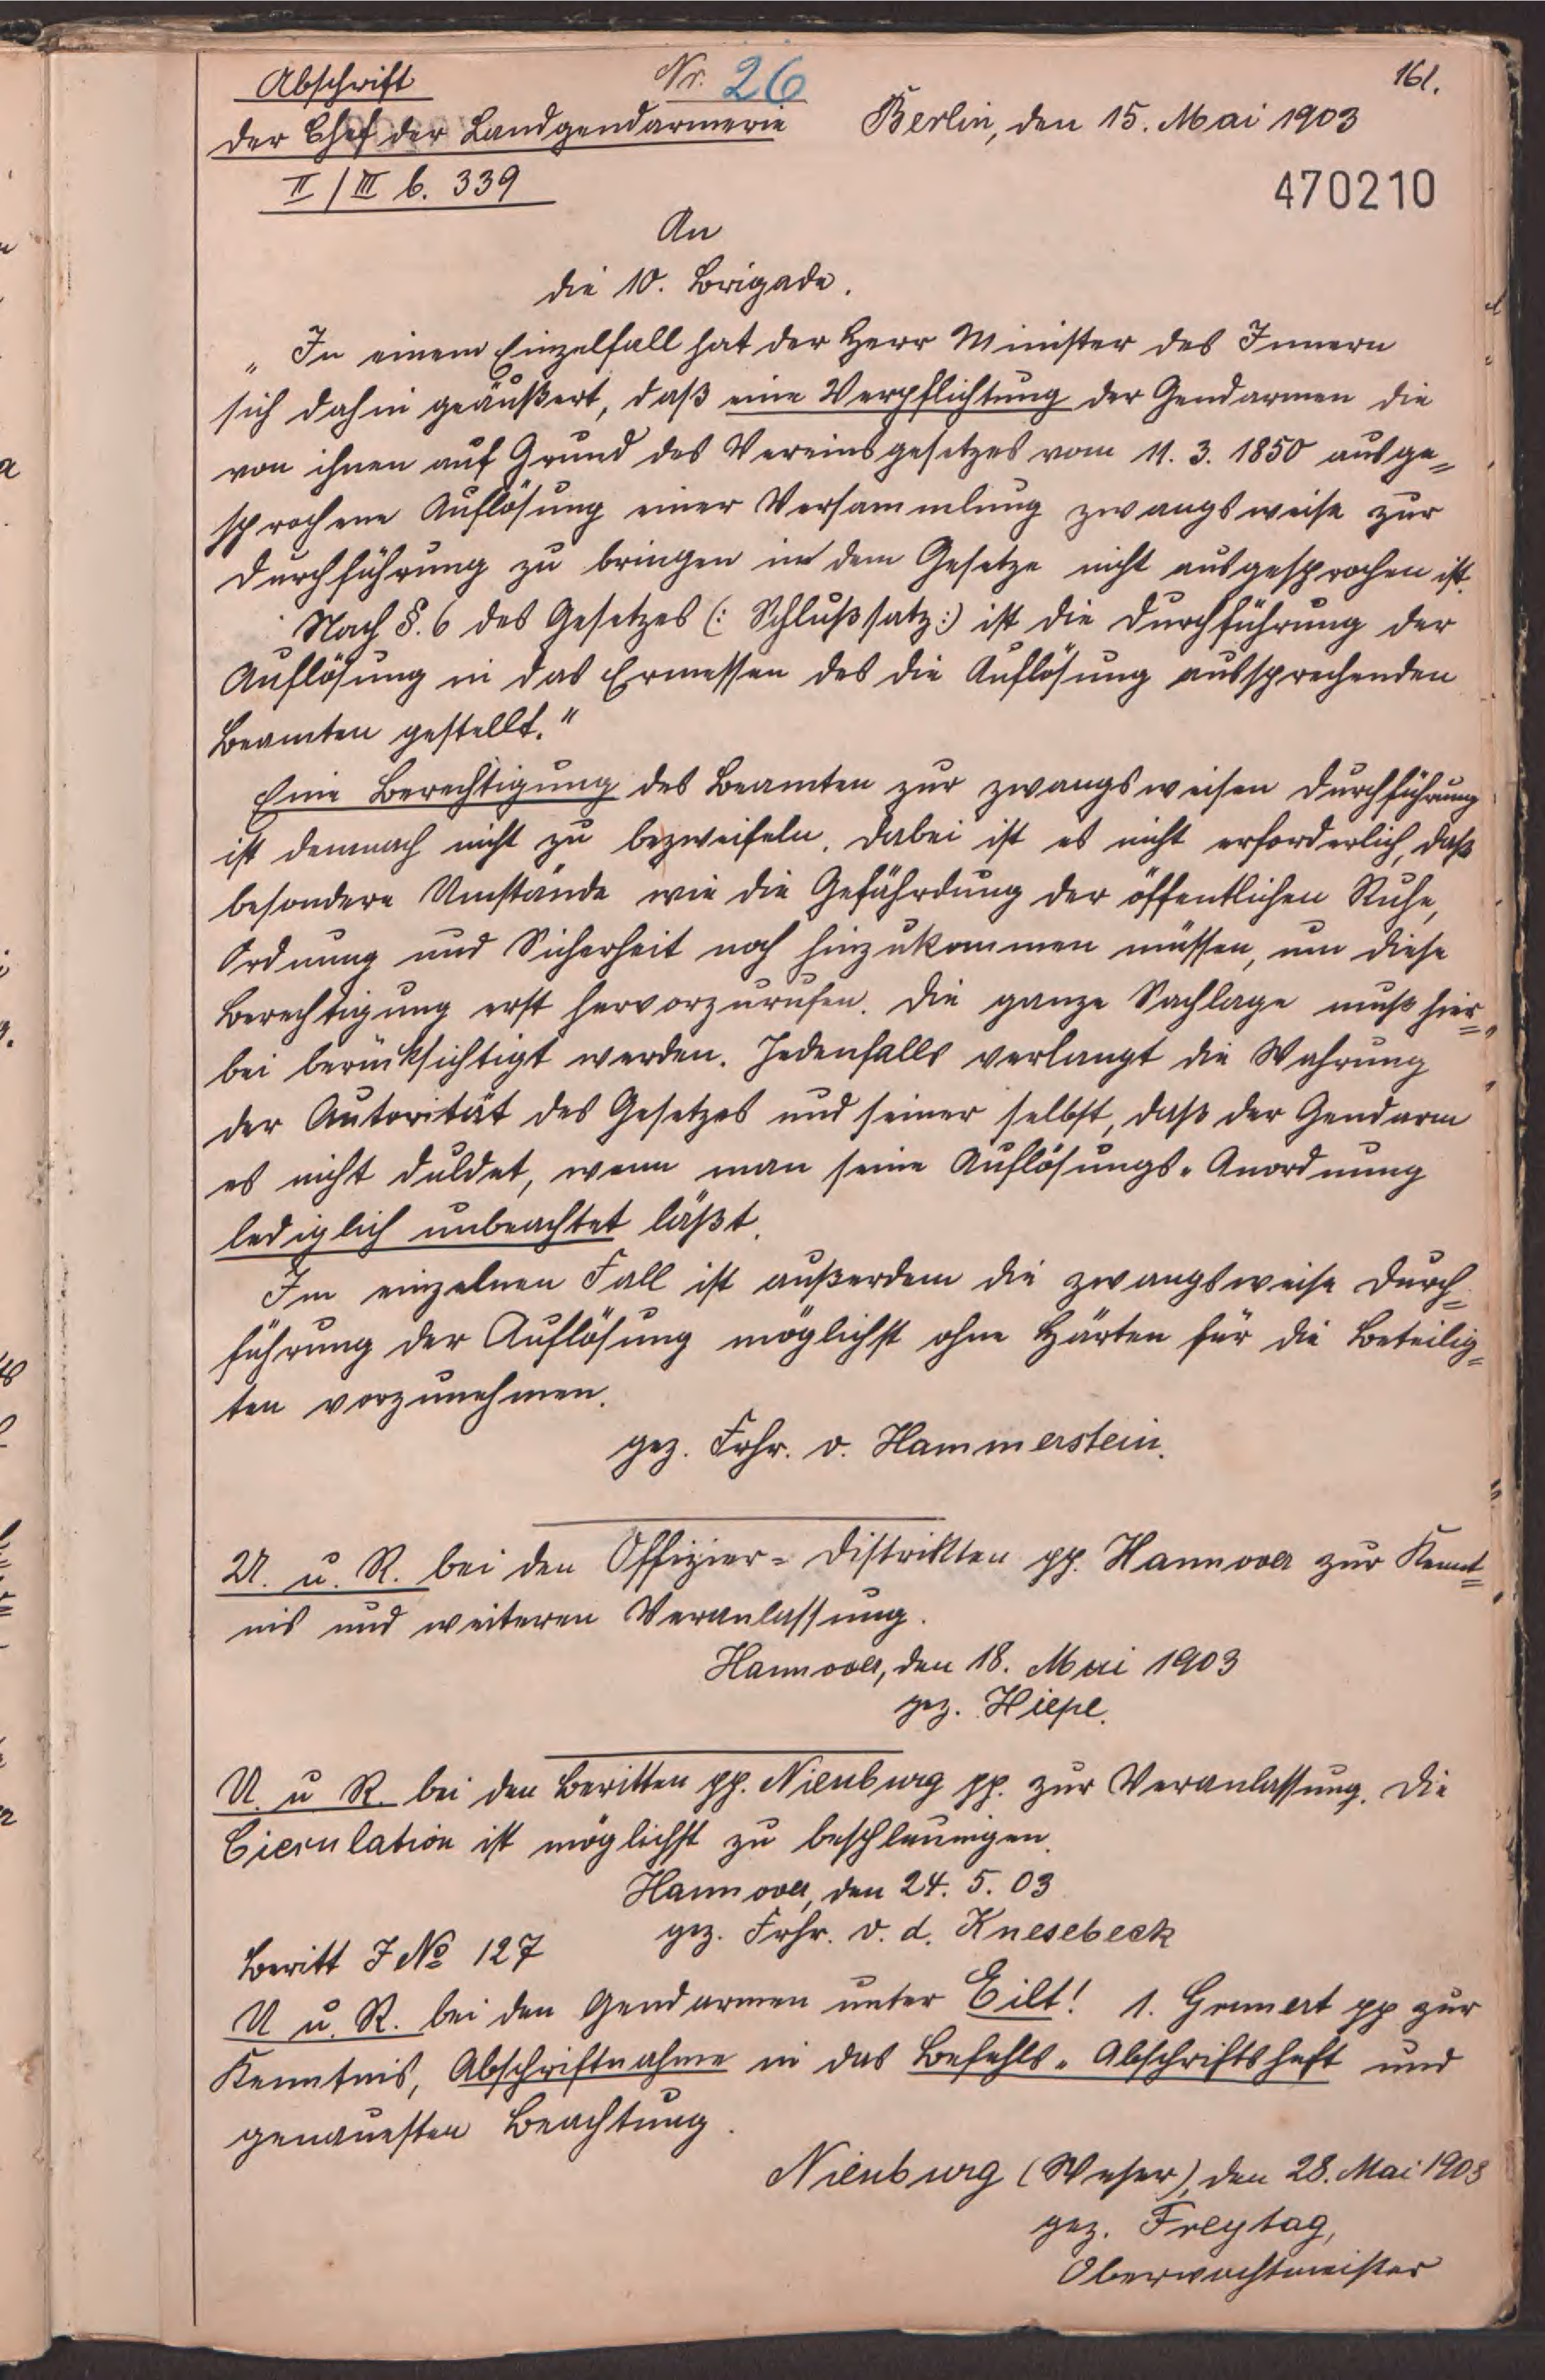 161.
Abschrift
Nr. 26
Der Chef der Landgendarmerie
Berlin, den 15. Mai 1903
II / III b. 339
470210
An
die 10. Brigade.
„In einem Einzelfall hat der Herr Minister des Innern
sich dahin geäußert, daß eine Verpflichtung der Gendarmen die
von ihnen auf Grund des Vereinsgesetzes vom 11. 3. 1850 ausge=
sprochene Auflösung einer Versammlung zwangsweise zur
Durchführung zu bringen in dem Gesetze nicht ausgesprochen ist.
Nach §. 6 des Gesetzes (: Schlußsatz:) ist die Durchführung der
Auflösung in das Ermessen des die Auflösung aussprechenden
Beamten gestellt."
Eine Berechtigung des Beamten zur zwangsweisen Durchführung
ist demnach nicht zu bezweifeln. Dabei ist es nicht erforderlich, daß
besondere Umstände wie die Gefährdung der öffentlichen Ruhe,
Ordnung und Sicherheit noch hinzukommen müssen, um diese
Berechtigung erst hervorzurufen. Die ganze Sachlage muß hier=
bei berücksichtigt werden. Jedenfalls verlangt die Wahrung
der Autorität des Gesetzes und seiner selbst, daß der Gendarm
es nicht duldet, wenn man seine Auflösungs-Anordnung
lediglich unbeachtet läßt.
Im einzelnen Fall ist außerdem die zwangsweise Durch=
führung der Auflösung möglichst ohne Härten für die Beteilig=
ten vorzunehmen.
gez. Frhr. v. Hammerstein.
U. u. R. bei den Offizier=Distrikten pp. Hannover zur Kennt=
nis und weiteren Veranlassung.
Hannover, den 18. Mai 1903
gez. Hiepe.
U. u R. bei den Beritten pp. Nienburg pp. zur Veranlassung. Die
Circulation ist möglichst zu beschleunigen.
Hannover, den 24. 5. 03
gez. Frhr. v. d. Knesebeck
Beritt J No 127
U u. R. bei den Gendarmen unter Eilt! 1. Grunert pp zur
Kenntnis, Abschriftnahme in das Befehls-Abschriftsheft und
genauesten Beachtung.
Nienburg (Weser), den 28. Mai 1903
gez. Freytag,
Oberwachtmeister